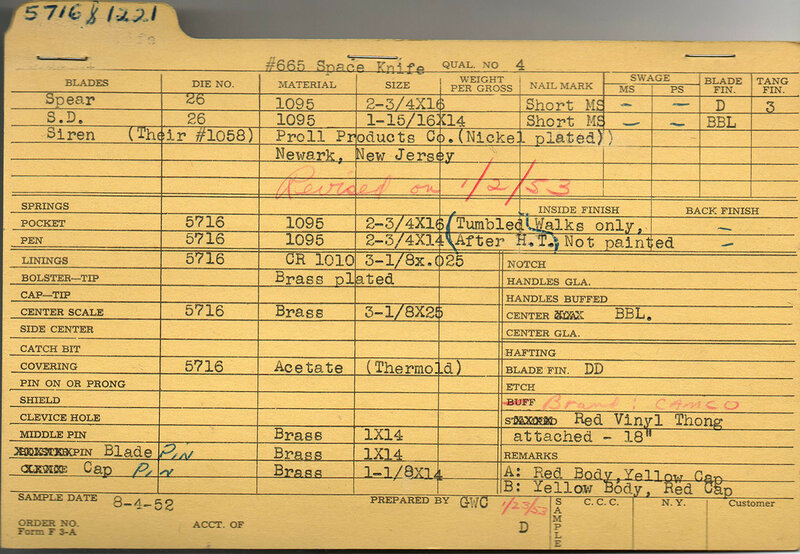 5716 & 1221
#665 Space Knife QUAL. NO 4
BLADES DIE NO. MATERIAL SIZE WEIGHT PER GROSS NAIL MARK SWAGE MS PS BLADE FIN. TANG FIN.
Spear 26 1095 2-3/4X16 Short MS — — D 3
S.D. 26 1095 1-15/16X14 Short MS — — BBL
Siren (Their #1058) Proll Products Co.(Nickel plated))
Newark, New Jersey
Revised on 1/2/53
SPRINGS INSIDE FINISH BACK FINISH
POCKET 5716 1095 2-3/4X16 (Tumbled Walks only, —
PEN 5716 1095 2-3/4X14 (After H.T.) Not painted —
LININGS 5716 CR 1010 3-1/8x.025 NOTCH
BOLSTER—TIP Brass plated HANDLES GLA.
CAP—TIP HANDLES BUFFED
CENTER SCALE 5716 Brass 3-1/8X25 CENTER BBL.
SIDE CENTER CENTER GLA.
CATCH BIT HAFTING
COVERING 5716 Acetate (Thermold) BLADE FIN. DD
PIN ON OR PRONG ETCH
SHIELD BUFF Brand: CAMCO
CLEVICE HOLE Red Vinyl Thong
attached - 18"
MIDDLE PIN Brass 1X14
PIN Blade Pin Brass 1X14 REMARKS
Cap Pin Brass 1-1/8X14 A: Red Body,Yellow Cap
B: Yellow Body, Red Cap
SAMPLE DATE 8-4-52 PREPARED BY GWC 1/23/53 SAMPLE C.C.C. N.Y. Customer
ORDER NO. ACCT. OF D
Form F 3-A